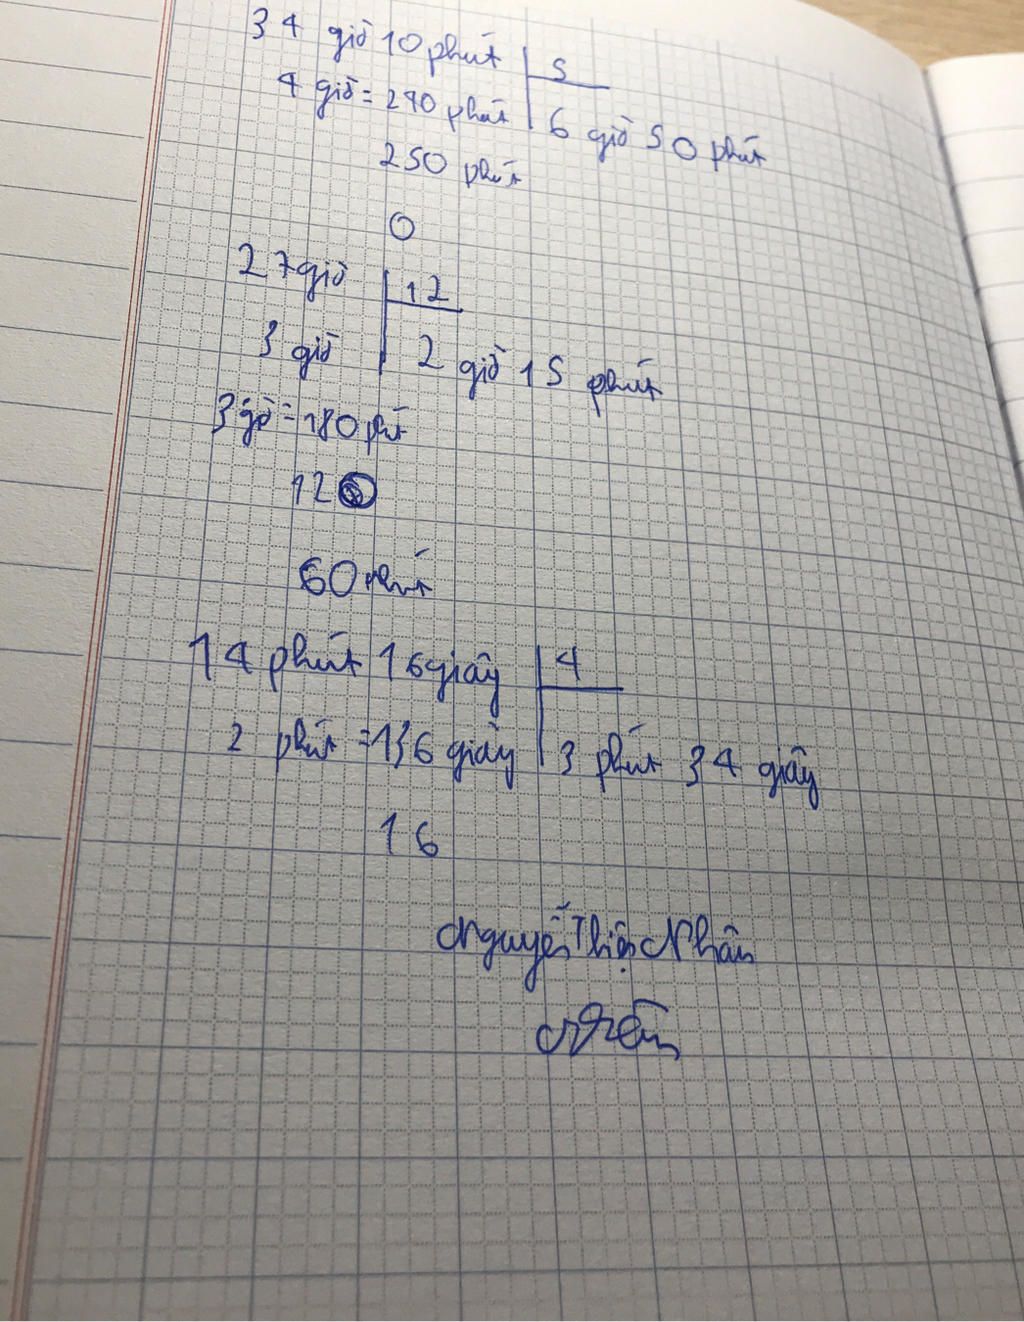 34 giờ 10 phút 5
4 giờ = 240 phút 6 giờ 50 phút
250 phút
0
27 giờ 12
3 giờ 2 giờ 15 phút
3 giờ = 180 phút
12
60 phút
14 phút 16 giây 4
2 phút = 136 giây 3 phút 34 giây
16
Nguyễn Thiện Nhân